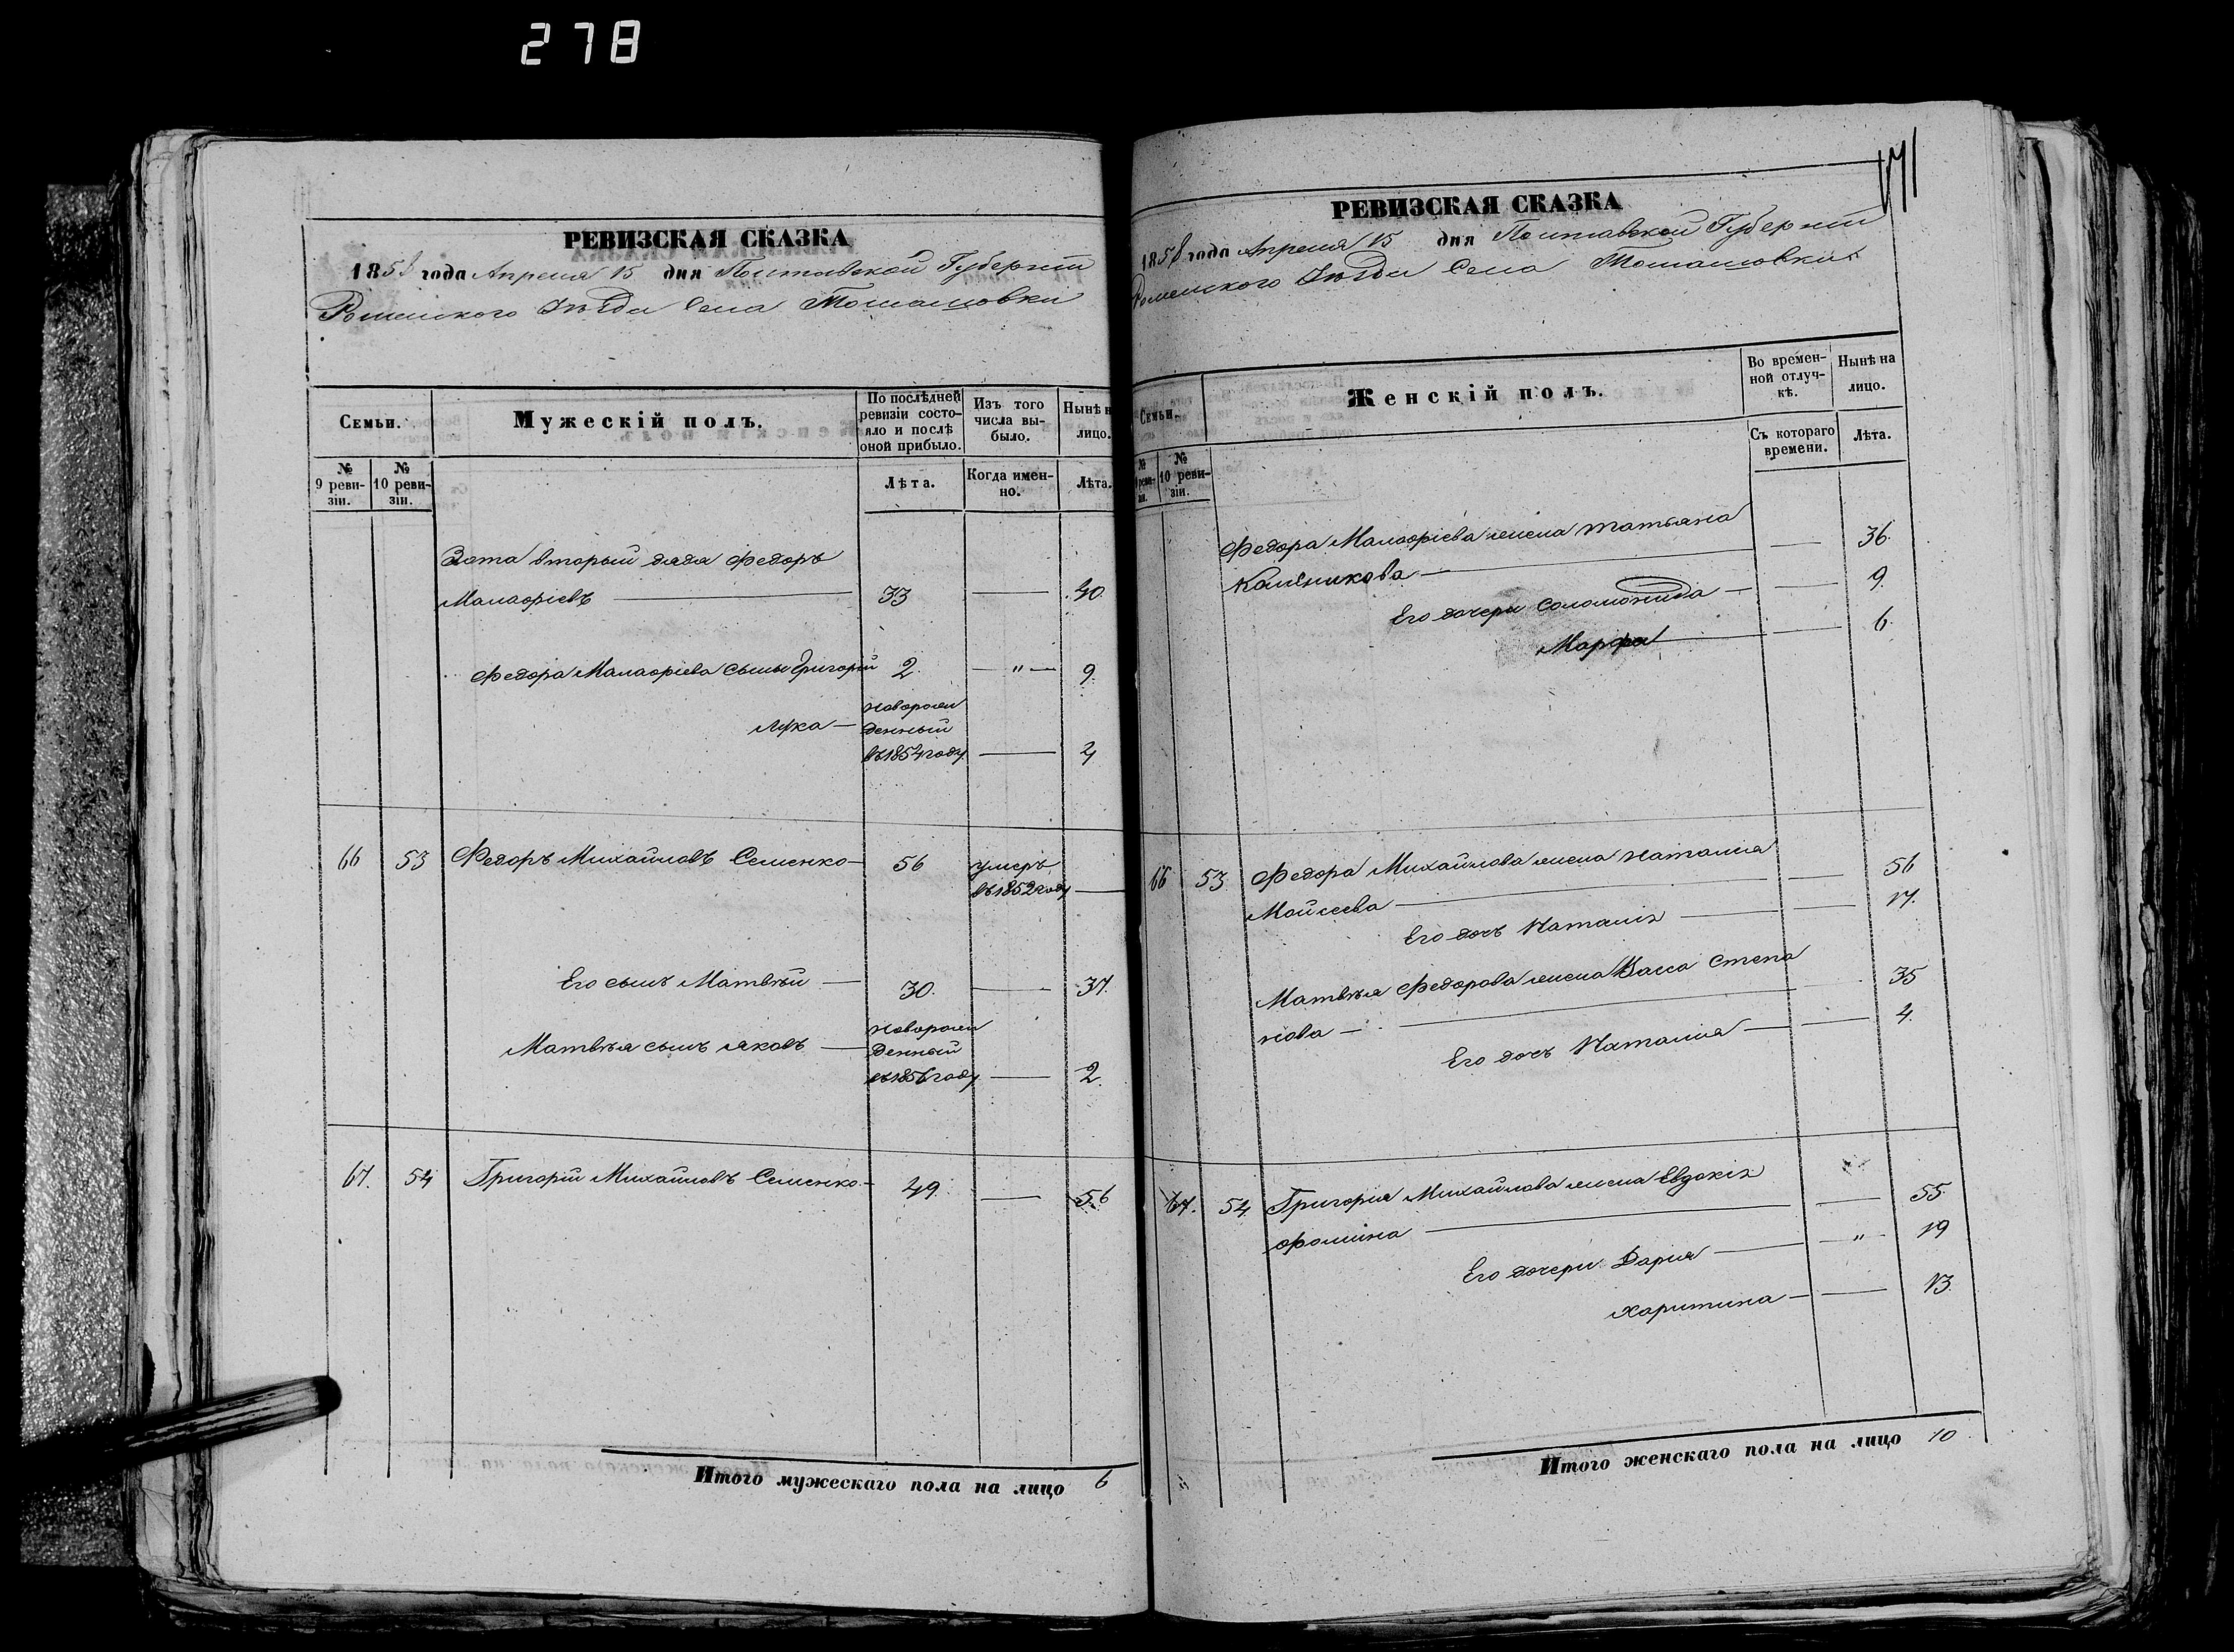 278
РЕВИЗСКАЯ СКАЗКА
1858 года Апреля 15 дня Полтавской Губерніи
Роменского Уѣзда Села Томашовки
Семьи.
Мужескій полъ.
По послѣдней ревизіи состояло и послѣ оной прибыло.
Изъ того числа выбыло.
Нынѣ н лицо.
№ 9 ревизіи.
№ 10 ревизіи.
Лѣта.
Когда именно.
Лѣта.
вторый дядя Федоръ
Малафіевъ — 33 — 40.
Федора Малафіева сыны Григорій 2. — " — 9.
Лука — новорожденный въ 1854 году — 4
66 53 Федоръ Михайловъ Семенко — 56 умеръ въ 1852 году —
Его сынъ Матвѣй — 30. — 37.
Матвѣя сынъ Яковъ — новорожденный въ 1856 году — 2.
67. 54 Григорій Михайловъ Семенко — 49. — 56
Итого мужескаго пола на лицо 6
171
РЕВИЗСКАЯ СКАЗКА
1858 года Апреля 15 дня Полтавской Губерніи
Роменского Уѣзда Села Томашовки
Семьи.
Женскій полъ.
Во временной отлучкѣ.
Нынѣ на лицо.
№ ревизіи.
№ 10 ревизіи.
Съ котораго времени.
Лѣта.
Федора Малафіева жена Татьяна
— — 36.
Его дочери Соломонида — — 9.
Марфа — — 6.
66 53 Федора Михайлова жена Наталия
Мойсеева — — 56
Его дочь Наталія — — 17.
Матвѣя Федорова жена Васса Степа
нова — — 35
Его дочь Наталия — — 4.
67. 54 Григорія Михайлова жена Евдокія
Фомина — — 55
Его дочери Дария — " — 19
Харитина — — 13.
Итого женскаго пола на лицо 10